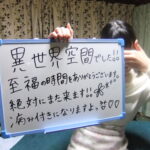 異世界空間でした!!
至福の時間をありがとうございます。
絶対にまた来ます!!
病み付きになりますよ。